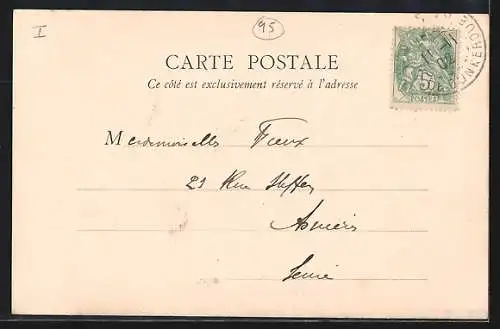 I
95
CARTE POSTALE
Ce côté est exclusivement réservé à l'adresse
Mesdemoiselles Fieux
21 Rue Steffen
Asnieres
Seine
5
DUNKERQUE